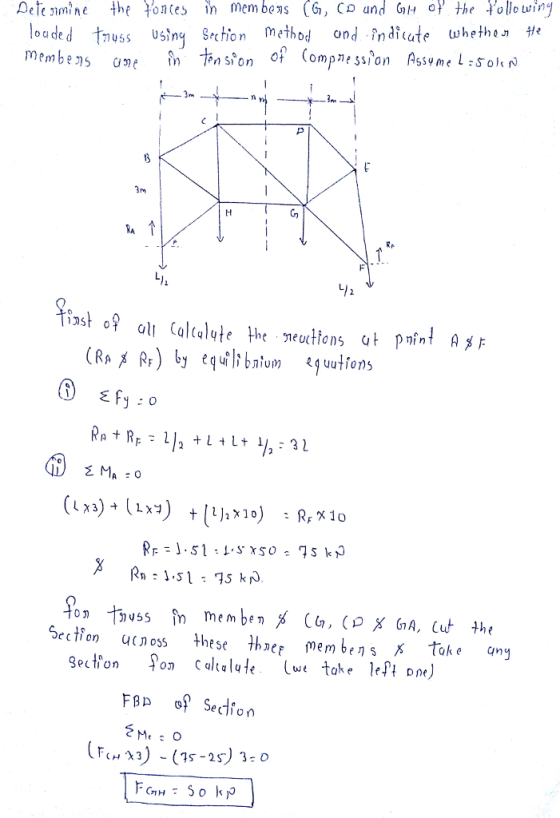 Determine the forces in members CG, CD and GH of the following
loaded truss using Section method and indicate whether the
members are in tension of Compression Assume L=50kN
3m
3m
C
D
B
E
3m
H
G
RA
RF
A
F
L/2
L/2
first of all Calculate the reactions at point A & F
(RA & RF) by equilibrium equations
(i) ΣFy = 0
RA + RF = L/2 + L + L + L/2 = 3L
(ii) ΣMA = 0
(L×3) + (L×7) + (L/2×10) = RF × 10
RF = 1.5L = 1.5×50 = 75 kN
& RA = 1.5L = 75 kN.
for truss in member & CG, CD & GA, cut the
Section across these three members & take any
section for calculate. (we take left one)
FBD of Section
ΣMc = 0
(FGH ×3) - (75-25) 3=0
FGH = 50 kN